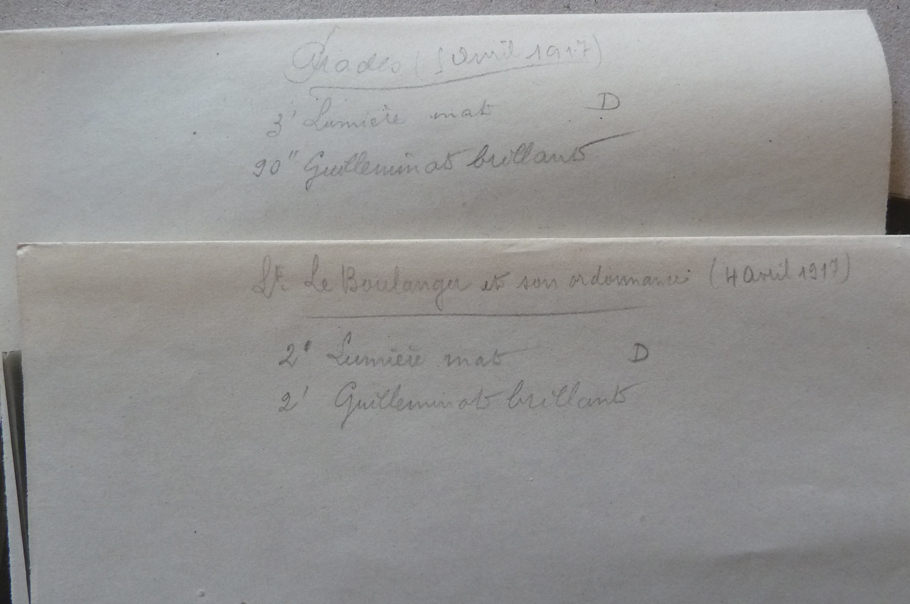 Prades (1 avril 1917)
3' Lumière mat D
90" Guilleminot brillant
Lt Le Boulanger et son ordonnance (4 avril 1917)
2' Lumière mat D
2' Guilleminot brillant